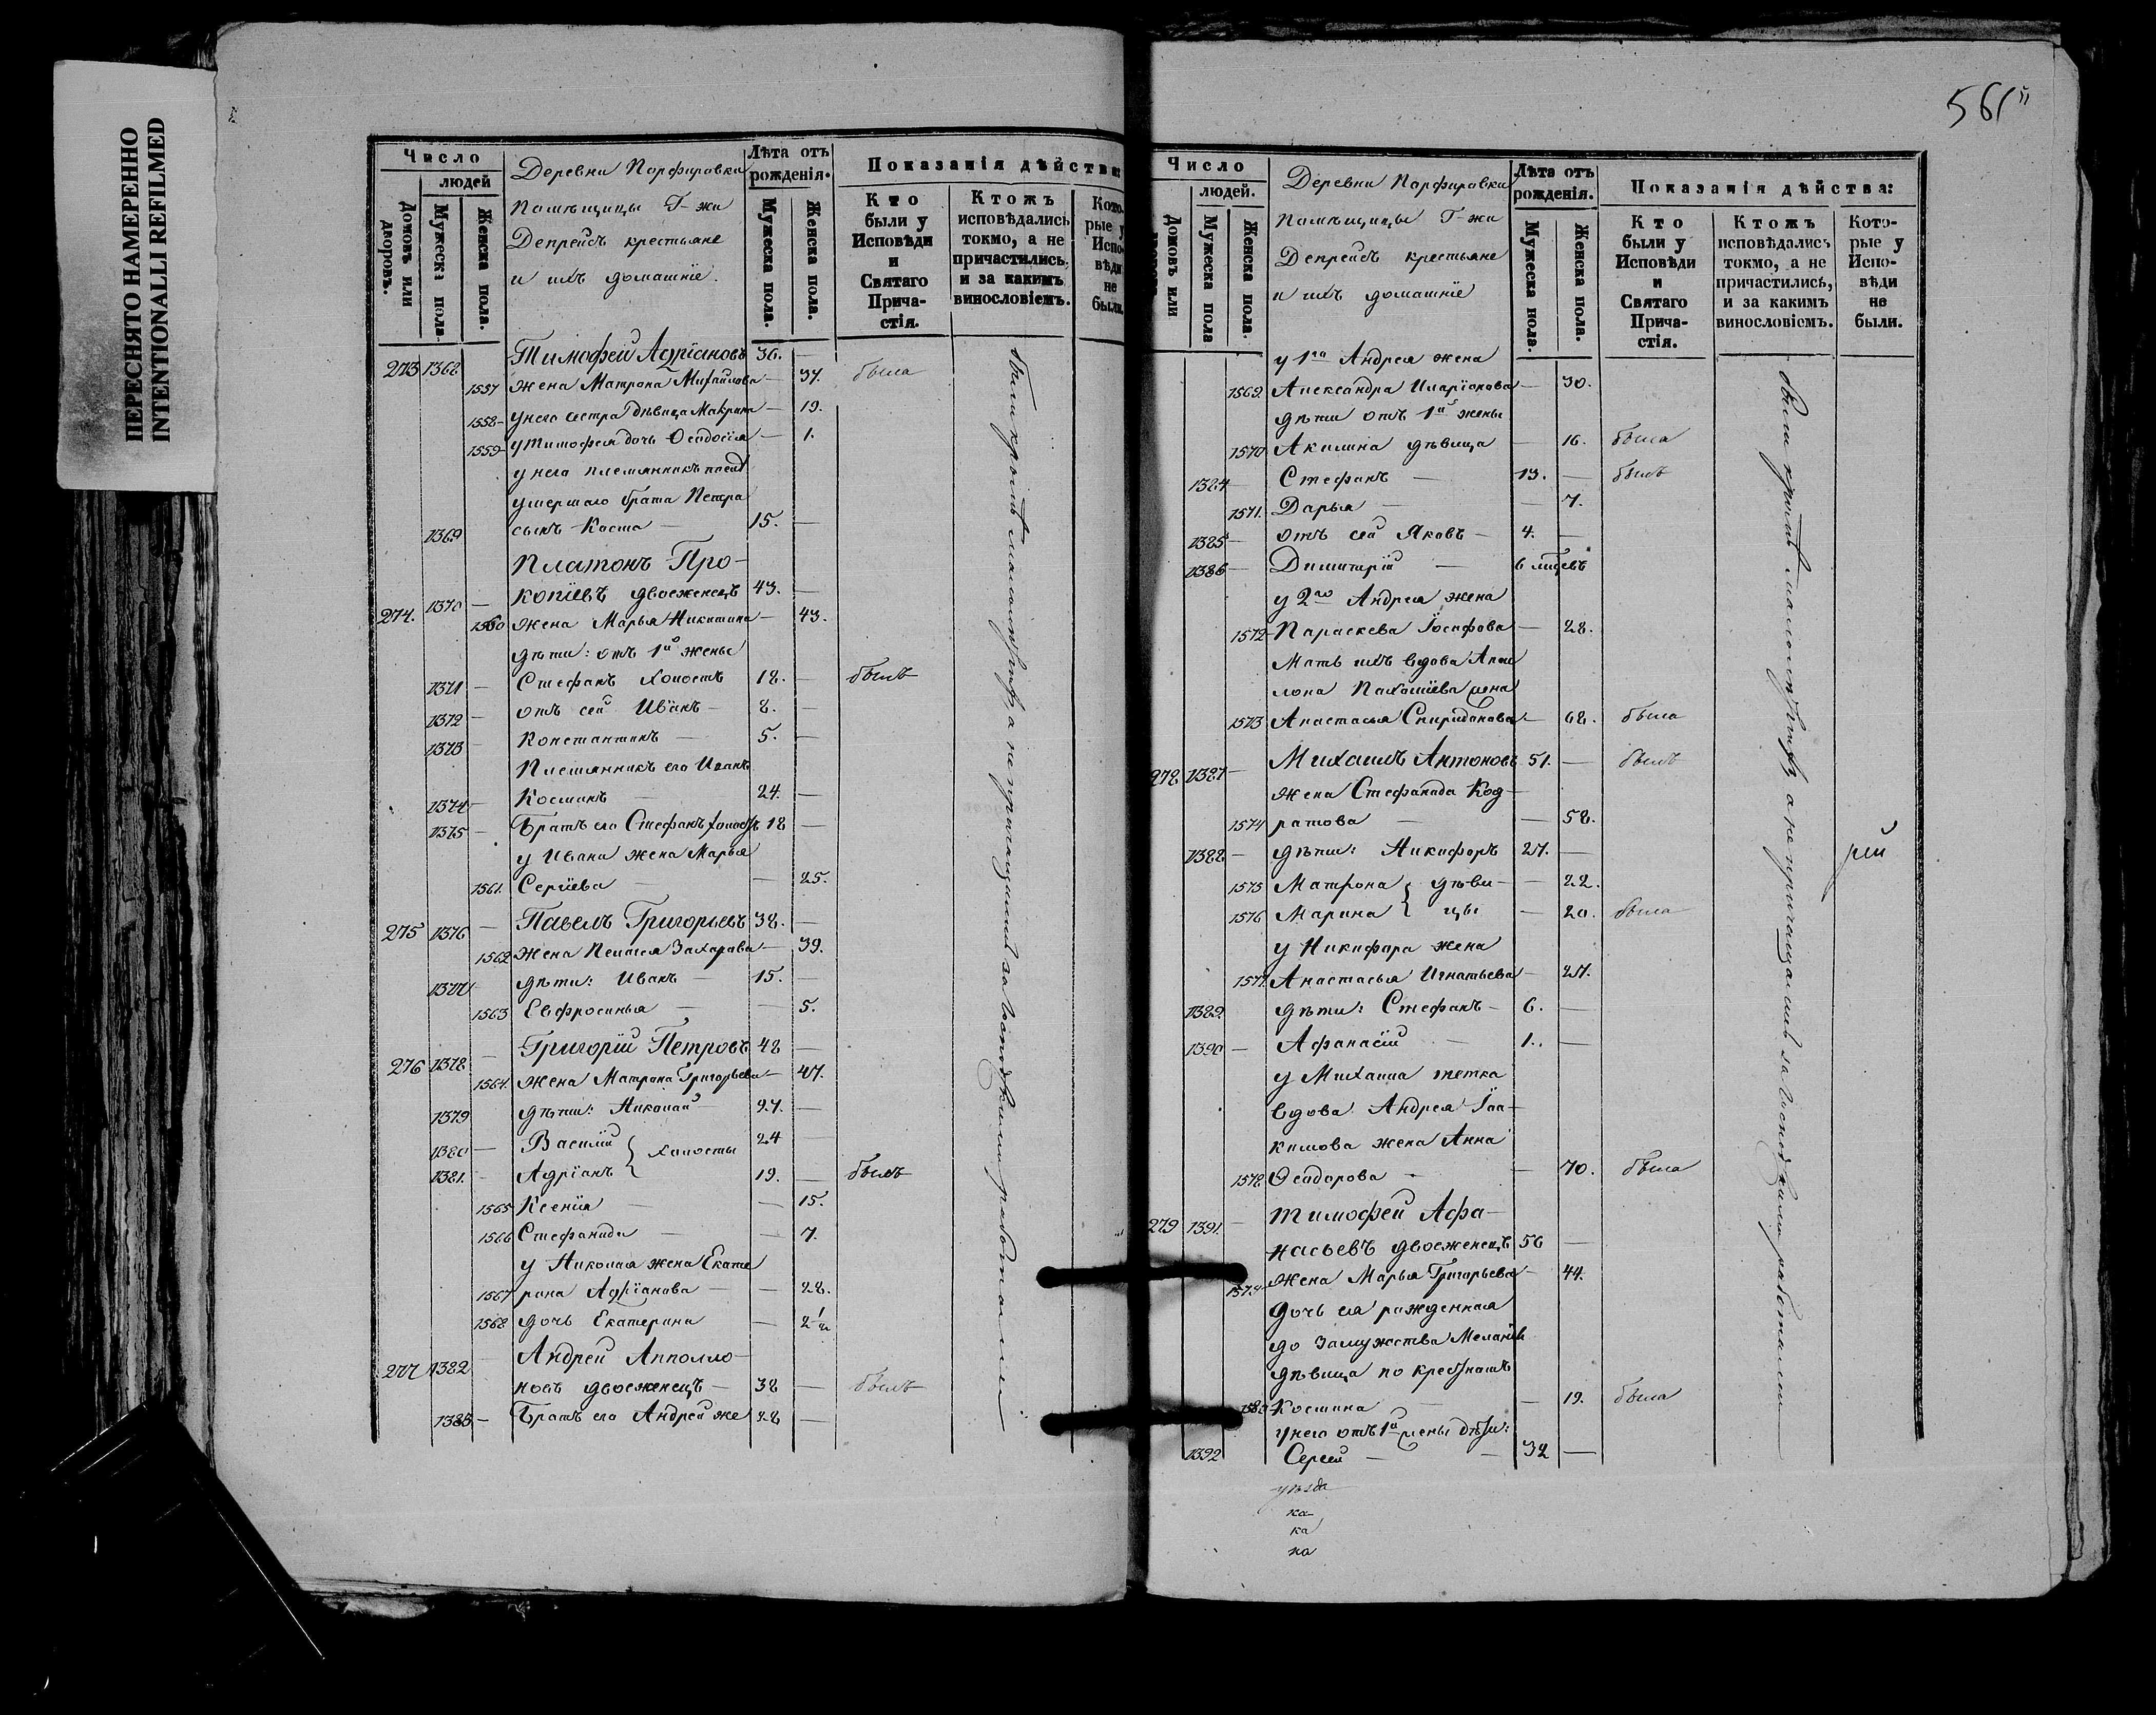 ПЕРЕСНЯТО НАМЕРЕННО
INTENTIONALLI REFILMED
Число
людей
Домовъ или дворовъ.
Мужеска пола.
Женска пола.
Деревни Порфировки
Помѣщицы Г-жи
Депрейсъ крестьяне
и ихъ домашніе.
Лѣта отъ рожденія.
Мужеска пола.
Женска пола.
Показанія дѣйства:
Кто были у Исповѣди и Святаго Прича-стія.
Ктожъ исповѣдались токмо, а не причастились, и за какимъ винословіемъ.
Кото-рые у Испо-вѣди не были.
273 1368 Тимофей Адріановъ 36. —
1557 жена Матрона Михайлова — 37. была
1558 — у него сестра дѣвица Макрина — 19.
1559 у Тимофея дочь Ѳеодосія — 1.
у него племянникъ
умершаго брата Петра
1369 сынъ Косма — 15. —
Платонъ Про-
274. 1370 — копіевъ двоеженецъ 43. —
1560 жена Марья Никитина — 43.
дѣти: отъ 1й жены
1371 — Стефанъ холостъ 18. — былъ
1372 — отъ сей Иванъ — 8. —
1373 — Константинъ — 5. —
Племянникъ его Иванъ
1374 — Косминъ — 24. —
1375 — Братъ его Стефанъ холостъ 18 —
у Ивана жена Марья
1561. Сергіева — — 25.
275 1376 — Павелъ Григорьевъ 38. —
1562 жена Пелагея Захарова — 39.
1377 дѣти: Иванъ — 15. —
1563 Евфросинья — — 5.
276 1378 — Григорій Петровъ 48 —
1564. жена Матрона Григорьева — 47.
1379 дѣти: Николай — 27. —
1380 — Василій } холосты 24 —
1381. — Адріанъ } 19. — былъ
1565 Ксенія — — 15.
1566 Стефанида — — 7.
у Николая жена Екате
1567 рина Адріанова — — 22.
1568 дочь Екатерина — 2
277 1382 — Андрей Апполло-
новъ двоеженецъ — 38 — былъ
1383 — Братъ его Андрей же 28 —
были кромѣ малолѣтнихъ, а не причащались за господскими работами
561
Число
людей.
Домовъ или
Мужеска пола
Женска пола.
Деревни Порфировки
Помѣщицы Г-жи
Депрейсъ крестьяне
и ихъ домашніе
Лѣта отъ рожденія.
Мужеска пола.
Женска пола.
Показанія дѣйства:
Кто были у Исповѣди и Святаго Прича-стія.
Ктожъ исповѣдались токмо, а не причастились, и за какимъ винословіемъ.
Кото-рые у Испо-вѣди не были.
у 1го Андрея жена
1569. Александра Иларіонова — 30.
дѣти отъ 1й жены
1570 Акилина дѣвица — 16. была
1384 — Стефанъ — 13. — былъ
1571. Дарья — — 7.
1385 — отъ сей Яковъ — 4. —
1386 — Димитрій — 6
у 2го Андрея жена
1572 — Параскева Іосифова — 28.
Мать ихъ вдова Апол
лона Пахоміева жена
1573 Анастасья Спиридонова — 68. была
278 1387 — Михаилъ Антоновъ 51. — былъ
жена Стефанида Код-
1574 ратова — — 58.
1388 — дѣти: Никифоръ 27. —
1575 Матрона } дѣви- — 22.
1576 Марина } цы — 20. была
у Никифора жена
1577 Анастасья Игнатьева — 27.
1389. дѣти: Стефанъ — 6. —
1390 — Афанасій — 1. —
у Михаила тетка
вдова Андрея Іоа-
кимова жена Анна
1578 Ѳеодорова — — 70. была
279 1391. — Тимофей Афа-
насьевъ двоеженецъ 56 —
1579 жена Марья Григорьева — 44.
дочь ея рожденная
до замужества Меланія
дѣвица по крестномъ
1580 Космина — 19. была
у него отъ 1й жены дѣти:
1392 Сергей — — 32 —
были кромѣ малолѣтнихъ, а не причащались за господскими работами
рей
уѣзда
ка
ка
на